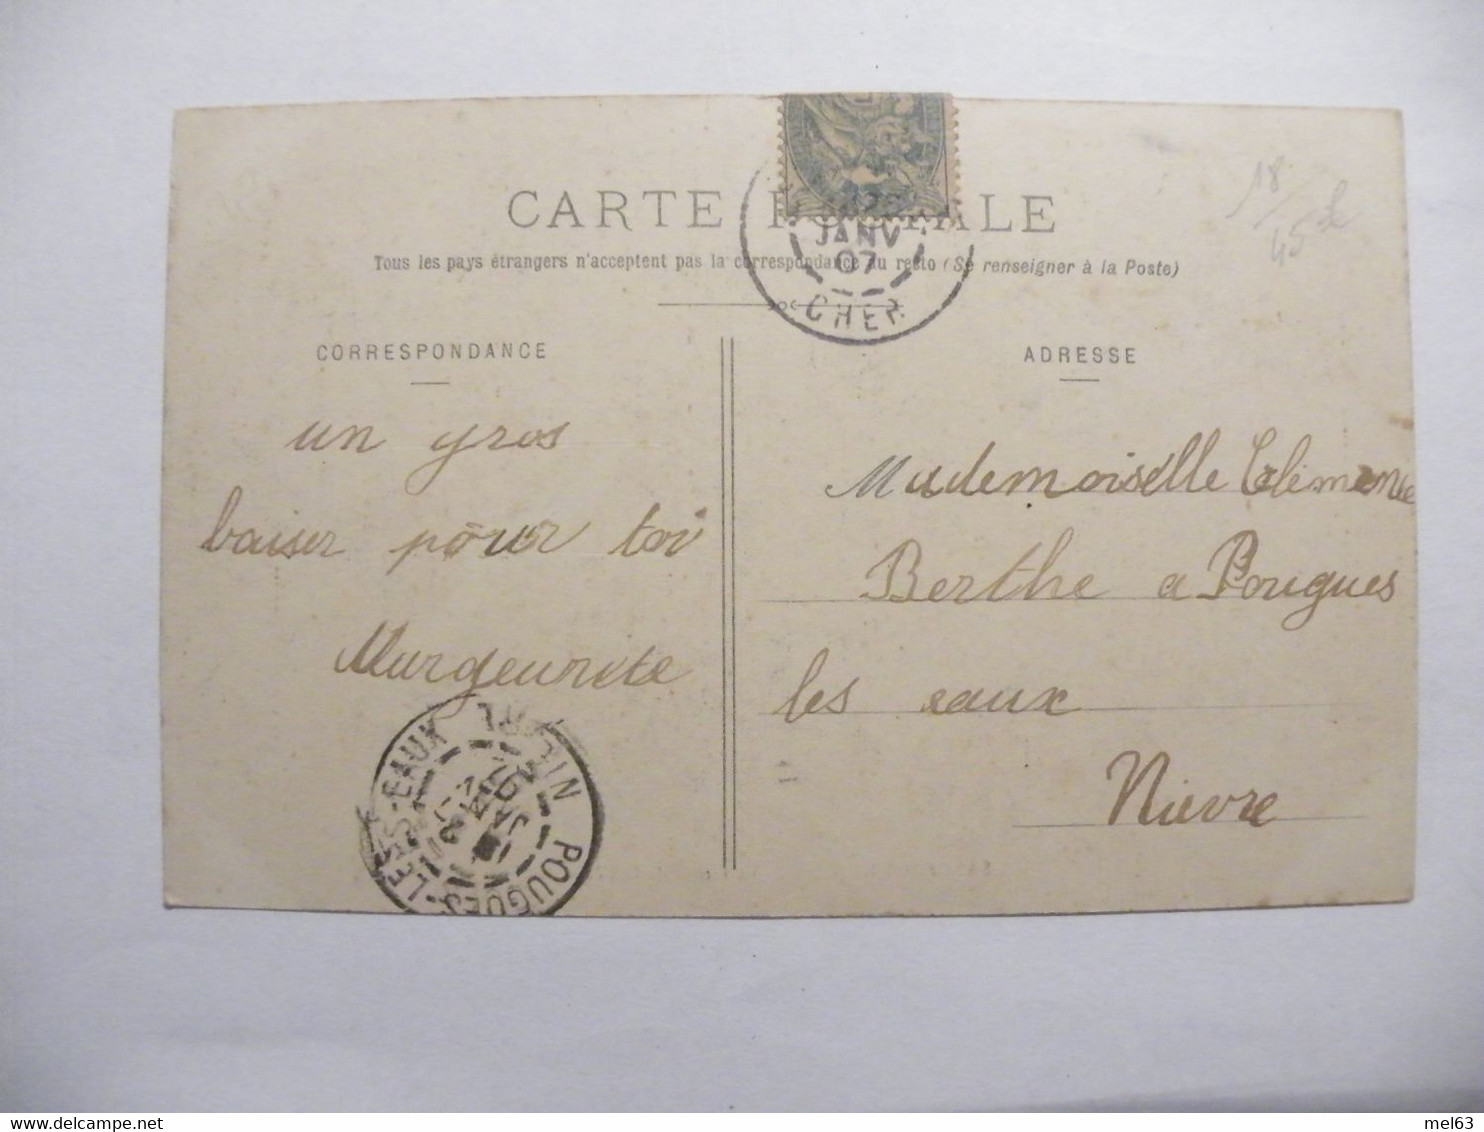 CARTE POSTALE
Tous les pays étrangers n'acceptent pas la correspondance au recto (Se renseigner à la Poste)
JANV
07
CHER
CORRESPONDANCE
un gros
baiser pour toi
Murgeurite
POUGUES-LES-EAUX
ADRESSE
Mademoiselle
Berthe a Pougues
les eaux
Nievre
18
45
mel63